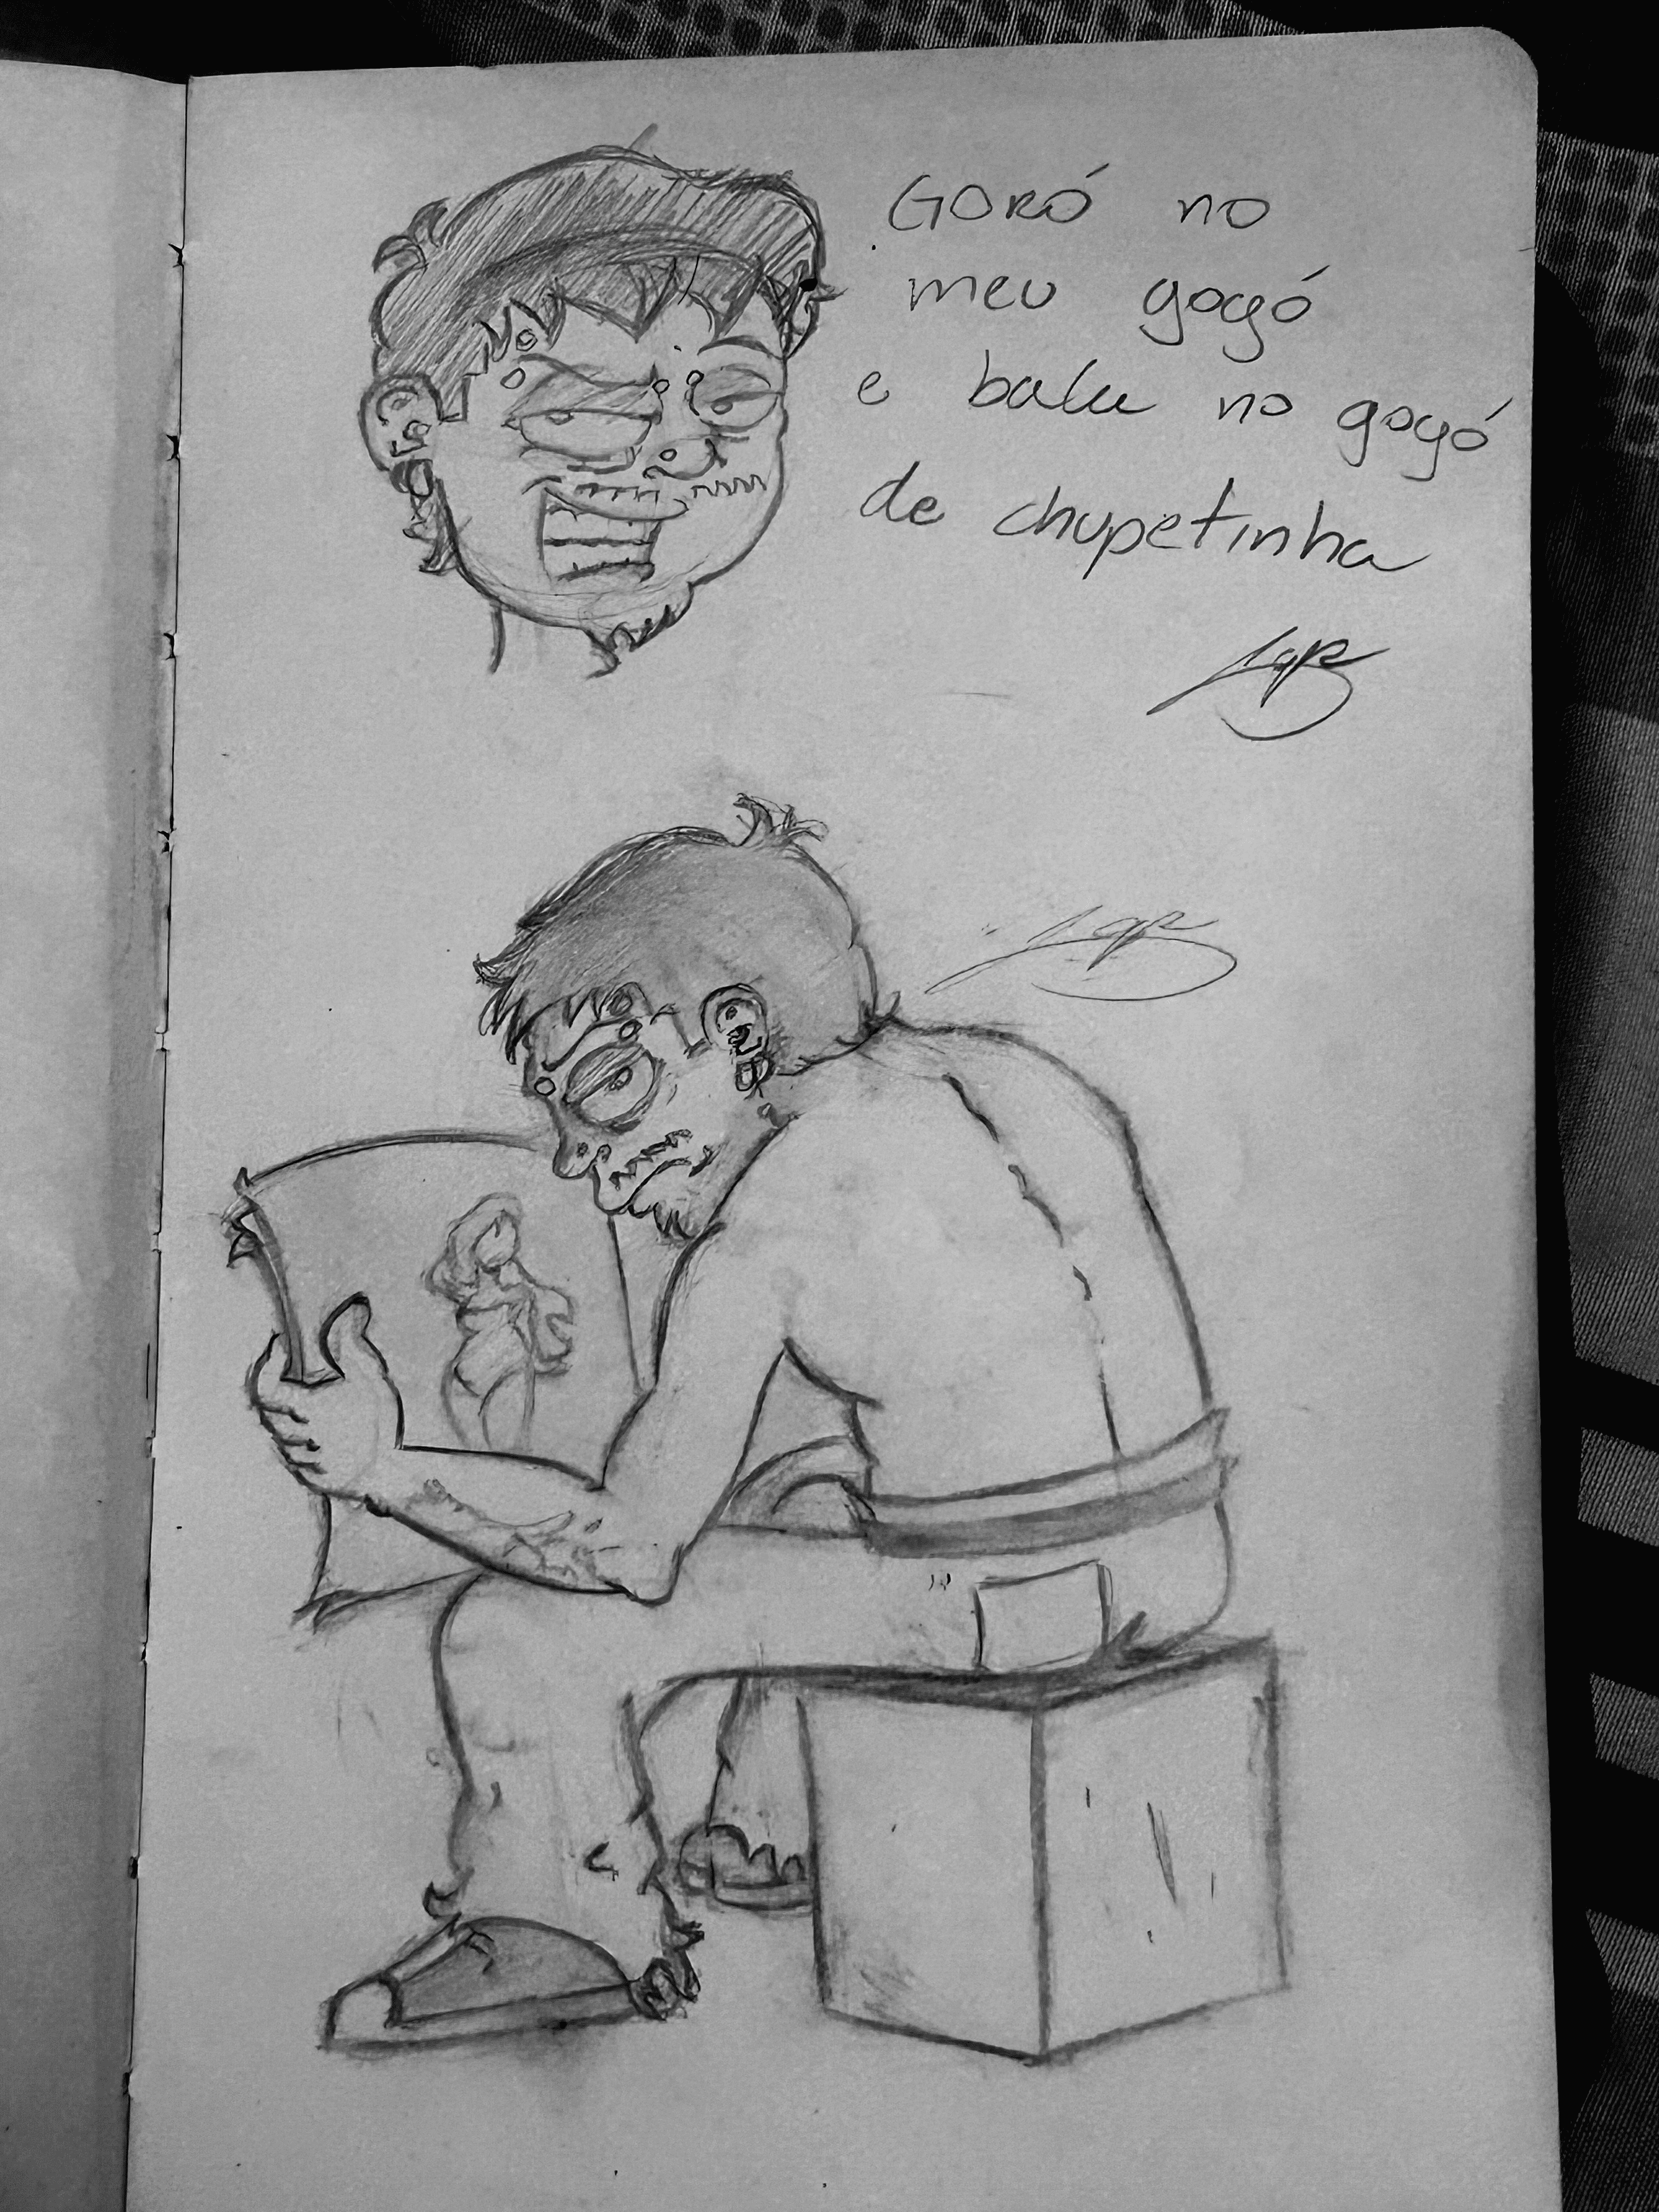 GORÓ no
meu gogó
e bala no gogó
de chupetinha